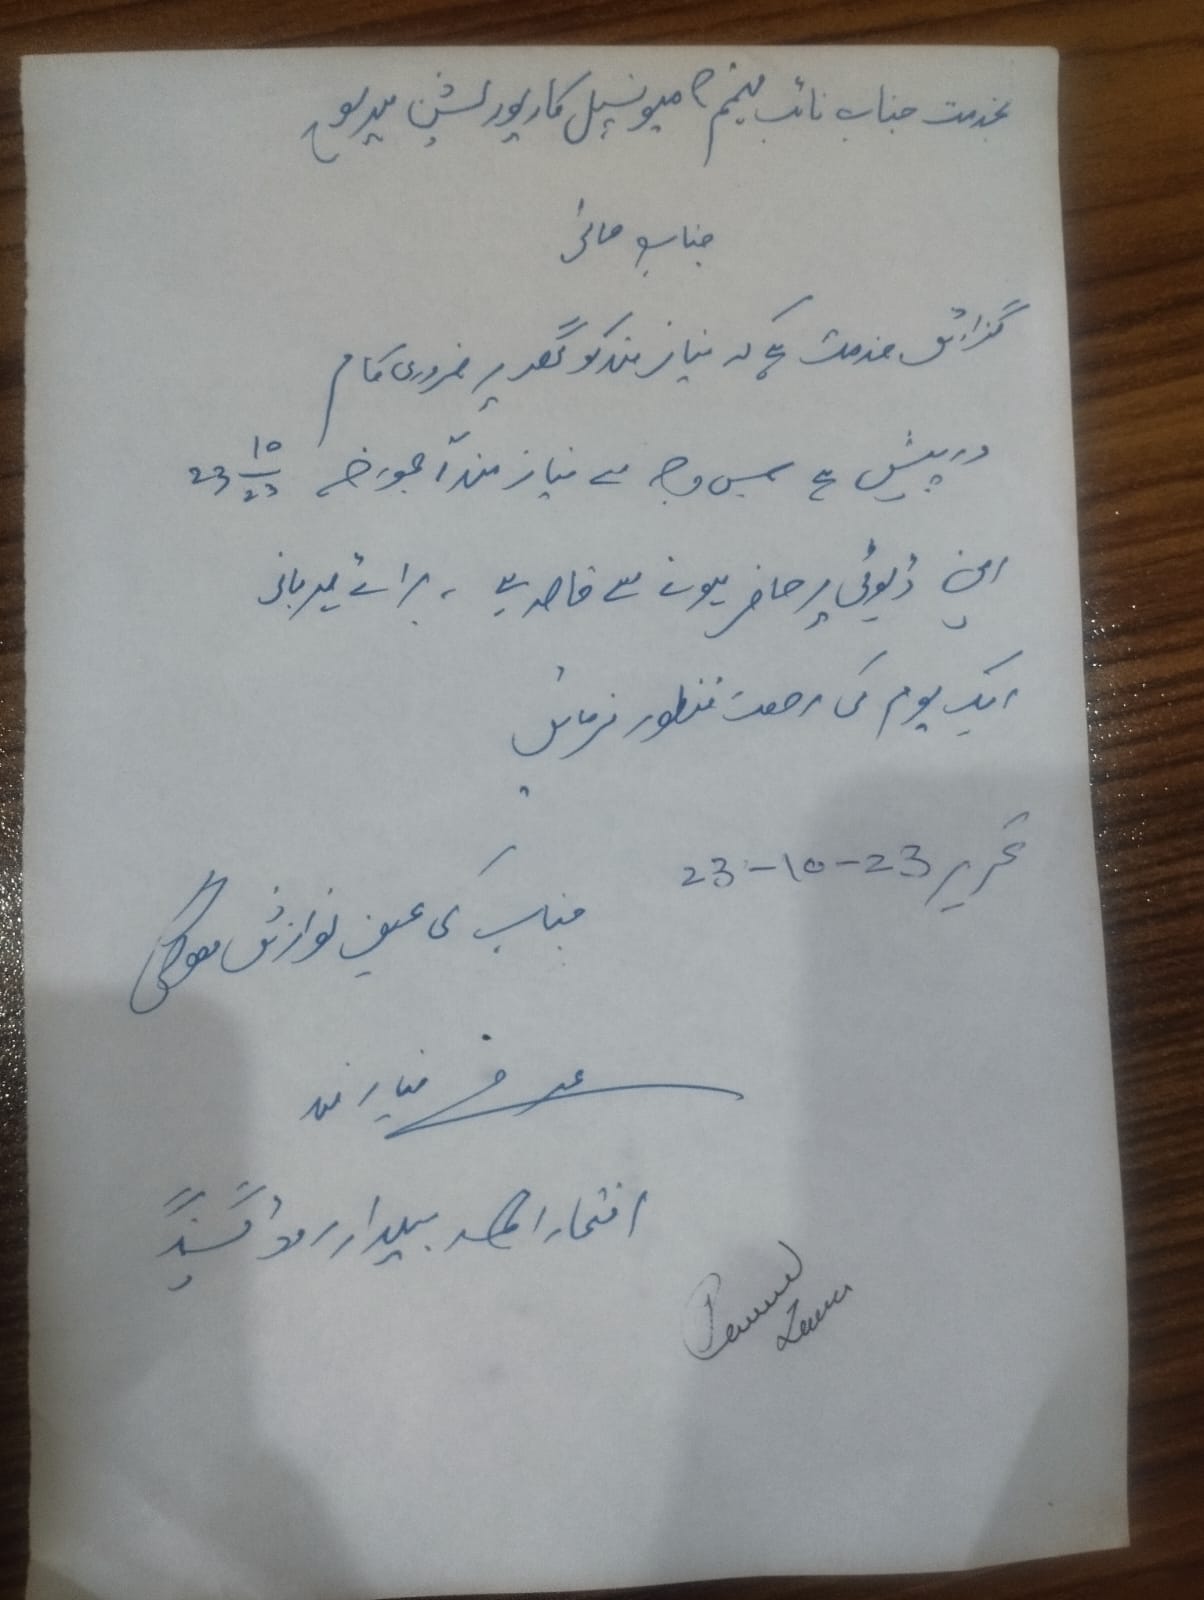 بخدمت جناب نائب مہتمم میونسپل کارپوریشن میرپور
جناب عالی
گزارش خدمت ہے کہ نیاز مند کو گھر پر ضروری کام
درپیش ہے جس وجہ سے نیاز مند آج مورخہ 23/10/23
اپنی ڈیوٹی پر حاضر ہونے سے قاصر ہے ۔ برائے مہربانی
ایک یوم کی رخصت منظور فرمائیں
تحریر 23-10-23
جناب کی عین نوازش ہوگی
عرضے نیاز مند
افتخار احمد بیلدار روڈ گینگ